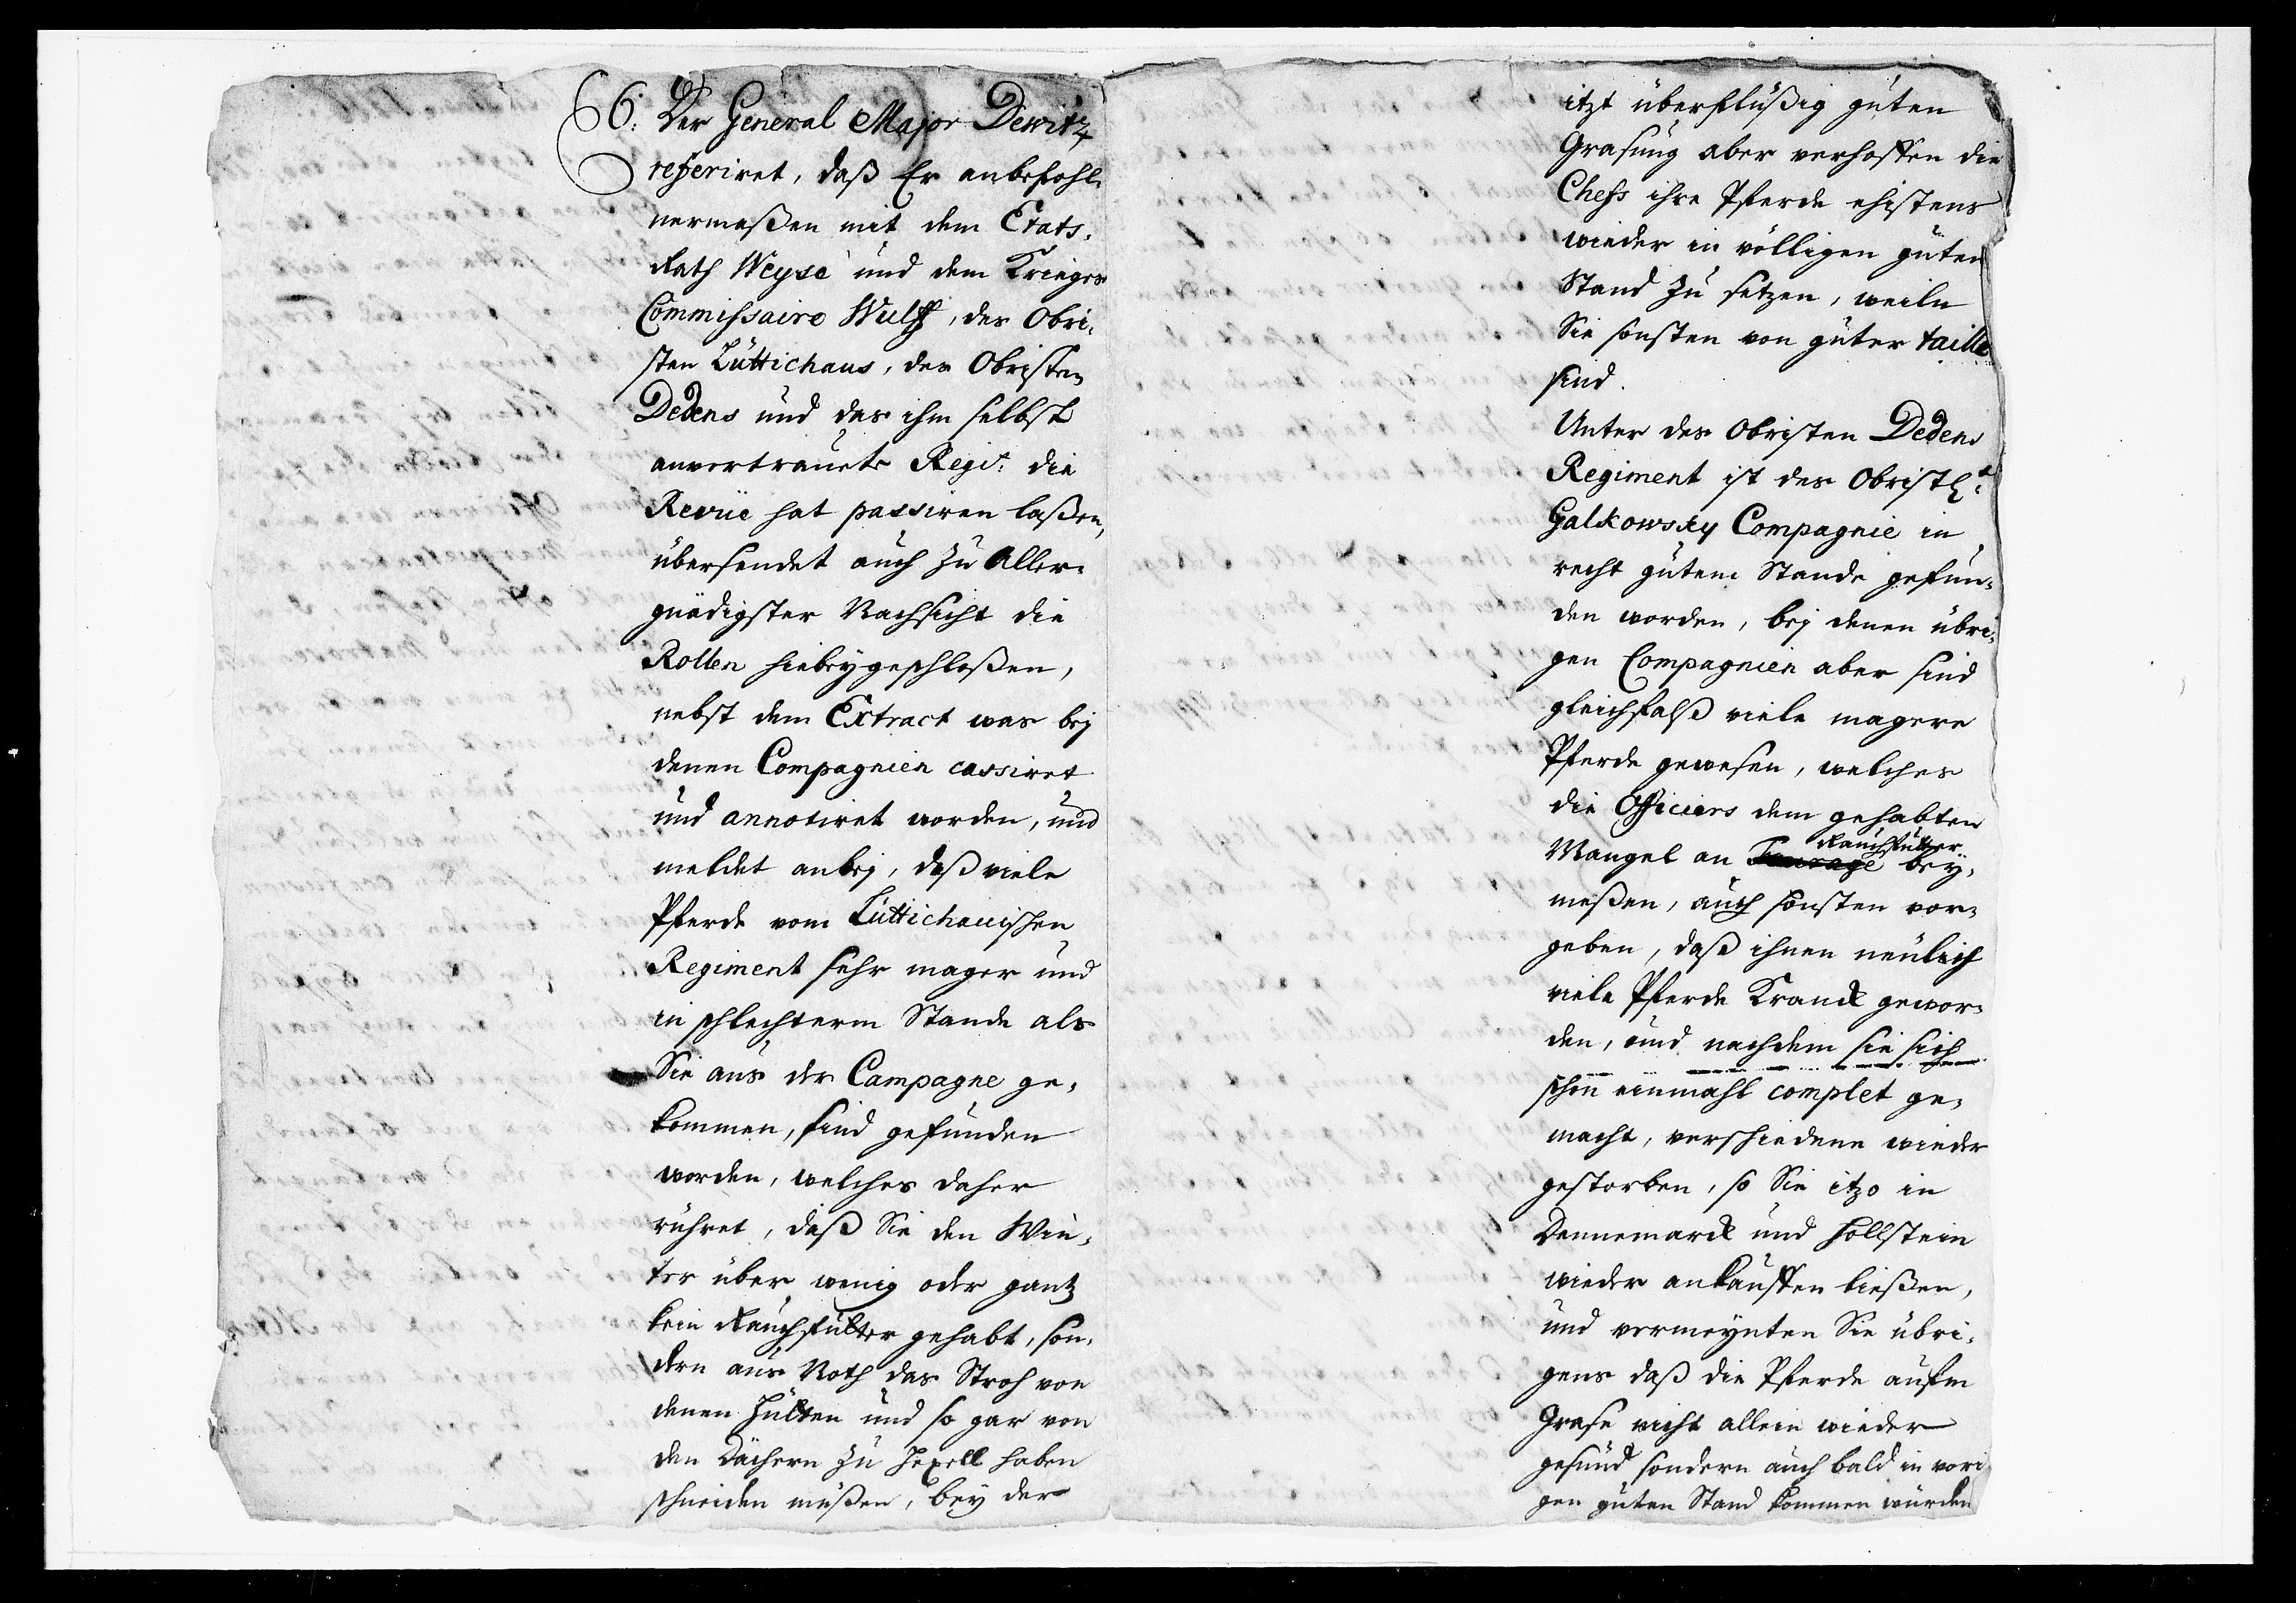 6. Der General Major Dewitz
referiret, daß Er anbefohle-
nermaßen mit dem Etats-
Rath Weyse und dem Krieges
Commissaire Wulff, des Obri-
sten Lüttichaus, des Obristen
Dedens und das ihm selbst
anvertrauete Regit: die
Revüe hat passiren laßen,
übersendet auch zu Aller-
gnädigster Nachsicht die
Rollen hiebeygeschloßen,
nebst dem Extract was bey
denen Compagnien cassiret
und annotiret worden, und
meldet anbey, daß viele
Pferde vom Lüttichauischen
Regiment sehr mager und
in schlechterm Stande als
Sie aus der Campagne ge-
kommen, sind gefunden
worden, welches daher
rühret, daß Sie den Win-
ter über wenig oder gantz
kein Rauhfutter gehabt, son-
dern aus Noth das Stroh von
denen Hütten und so gar von
den Dächern zu Hexell haben
schneiden müßen, bey der
itzt überflüßig guten
Grasung aber verhoffen die
Chefs ihre Pferde ehistens
wieder in völligen guten
Stand zu setzen, weiln
Sie sonsten von guter taille
sind.
Unter des Obristen Dedens
Regiment ist des Obristlt:
Galkowsky Compagnie in
recht gutem Stande gefun-
den worden, bey denen übri-
gen Compagnien aber sind
gleichfalß viele magere
Pferde gewesen, welches
die Officiers dem gehabten
Mangel an Fourage Rauhfutter bey-
meßen, auch sonsten vor-
geben, daß ihnen neulich
viele Pferde Kranck gewor-
den, und nachdem sie sich
schon einmahl complet ge-
macht, verschiedene wieder
gestorben, so Sie itzo in
Dennemarck und Hollstein
wieder ankauffen ließen,
und vermeynten Sie übri-
gens daß die Pferde aufm
Grase nicht allein wieder
gesund sondern auch bald in vori-
gen guten Stand kommen würden